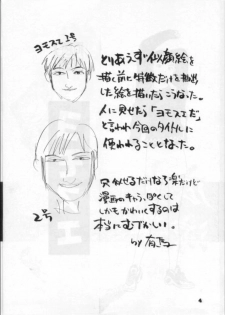 ヨモスエ2号
とりあえず似顔絵を
描く前に特徴だけを抽出
した絵を描いたらこうなった。
人に見せたら「ヨモスエだ」
と言われ今回のタイトルに
使われることとなった。
只似せるだけなら楽だけど
漫画のキャラっぽくして
しかもかわいくするのは
本当にむずかしい。
by 有馬
2号
4